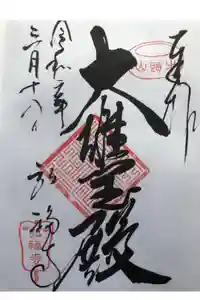 奉拝
大雄宝殿
令和二年
三月十八日
興福寺